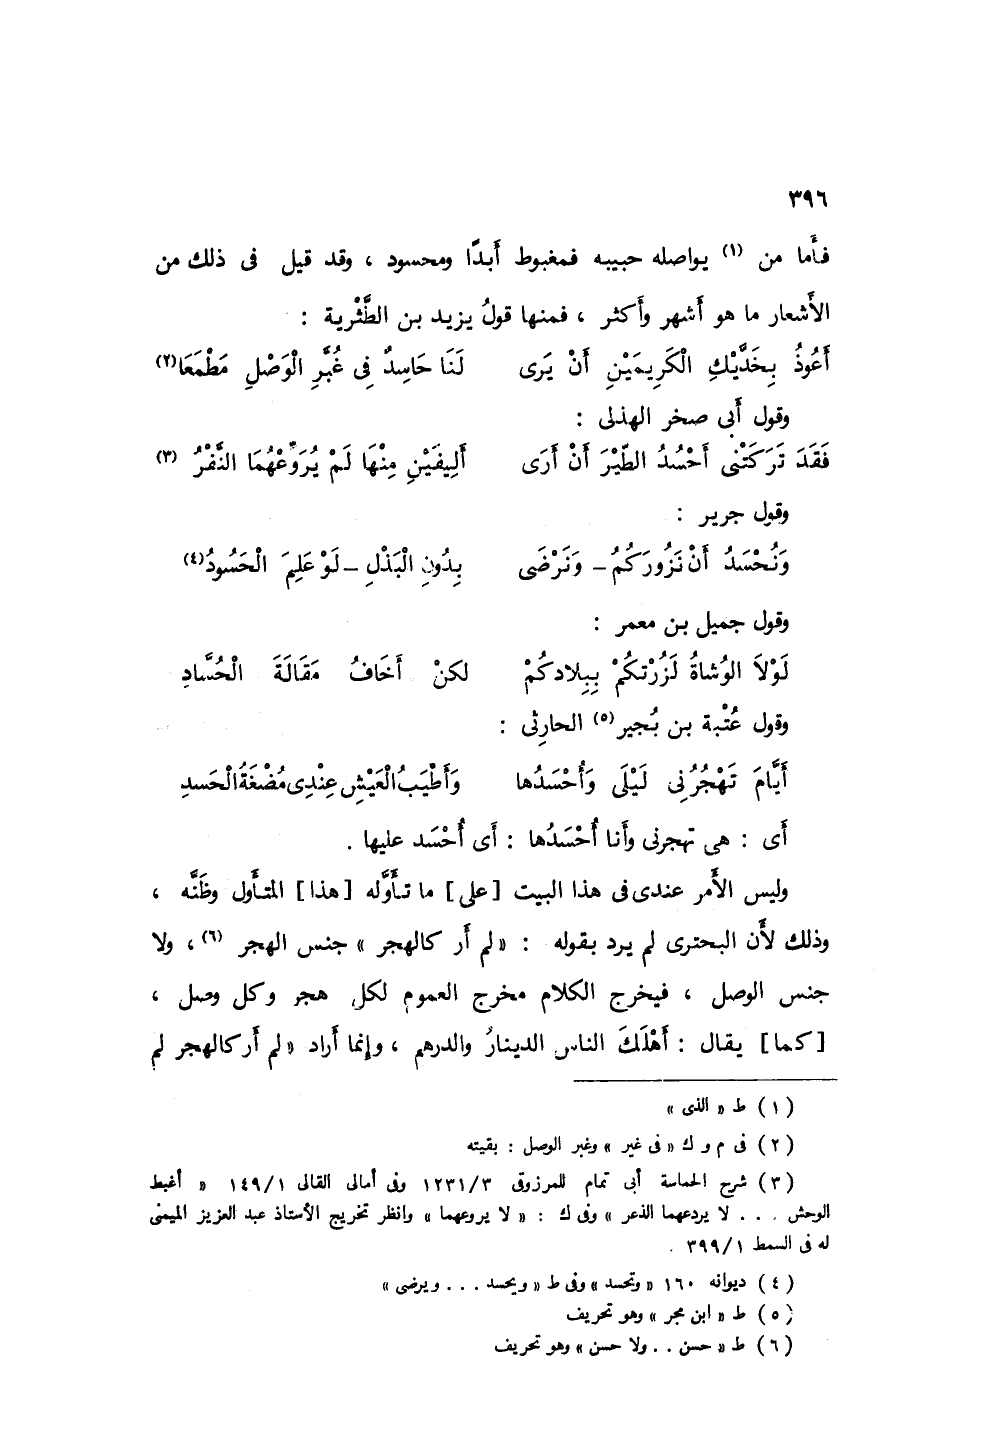 ٣٩٦
فأَما من (١) يواصله حبيبه فمغبوط أَبدًا ومحسود ، وقد قيل فى ذلك من
الأَشعار ما هو أَشهر وأَكثر ، فمنها قولُ يزيد بن الطَّثْرية :
أَعُوذُ بِخَدَّيْكِ الْكَرِيمَيْنِ أَنْ يَرى لَنَا حَاسِدٌ فِى غُبَّرِ الْوَصْلِ مَطْمَعَا(٢)
وقول أَبى صخر الهذلى :
فَقَدَ تَرَكَتْنى أَحْسُدُ الطَّيْرَ أَنْ أَرَى أَلِيفَيْنِ مِنْهَا لَمْ يُرَوِّعْهُمَا النَّفْرُ (٣)
وقول جرير :
وَنُحْسَدُ أَنْ نَزُورَكُمُ – وَنَرْضَى بِدُونِ الْبَذْلِ – لَوْ عَلِمَ الْحَسُودُ(٤)
وقول جميل بن معمر :
لَوْلاَ الوُشاةُ لَزُرْتكُمْ بِبِلادكُمْ لكنْ أَخَافُ مَقَالَةَ الْحُسَّادِ
وقول عُتْبة بن بُجير(٥) الحارِثى :
أَيَّامَ تَهْجُرُنِى لَيْلَى وَأُحْسَدُها وَأَطْيَبُ الْعَيْشِ عِنْدِى مُضْغَةُ الْحَسدِ
أَى : هى تهجرنى وأَنا أُحْسَدُها : أَى أُحْسَد عليها .
وليس الأَمر عندى فى هذا البيت [على] ما تأَوَّله [هذا] المتأَول وظَنَّه ،
وذلك لأَن البحترى لم يرد بقوله : « لم أَر كالهجر » جنس الهجر (٦) ، ولا
جنس الوصل ، فيخرج الكلام مخرج العموم لكل هجر وكل وصل ،
[كما] يقال : أَهْلَكَ الناس الدينارُ والدرهم ، وإنما أَراد « لم أَر كالهجر لم
(١) ط « الذى »
(٢) فى م و ك « فى غير » وغبر الوصل : بقيته
(٣) شرح الحماسة أبى تمام للمرزوقى ١٢٣١/٣ وفى أمالى القالى ١٤٩/١ « أغبط
الوحش . . . لا يردعهما الذعر » وفى ك : « لا يروعهما » وانظر تخريج الأستاذ عبد العزيز الميمنى
له فى السمط ٣٩٩/١ .
(٤) ديوانه ١٦٠ « وتحسد » وفى ط « ويحسد . . . ويرضى »
(٥) ط « ابن مجر » وهو تحريف
(٦) ط « حسن . . ولا حسن » وهو تحريف